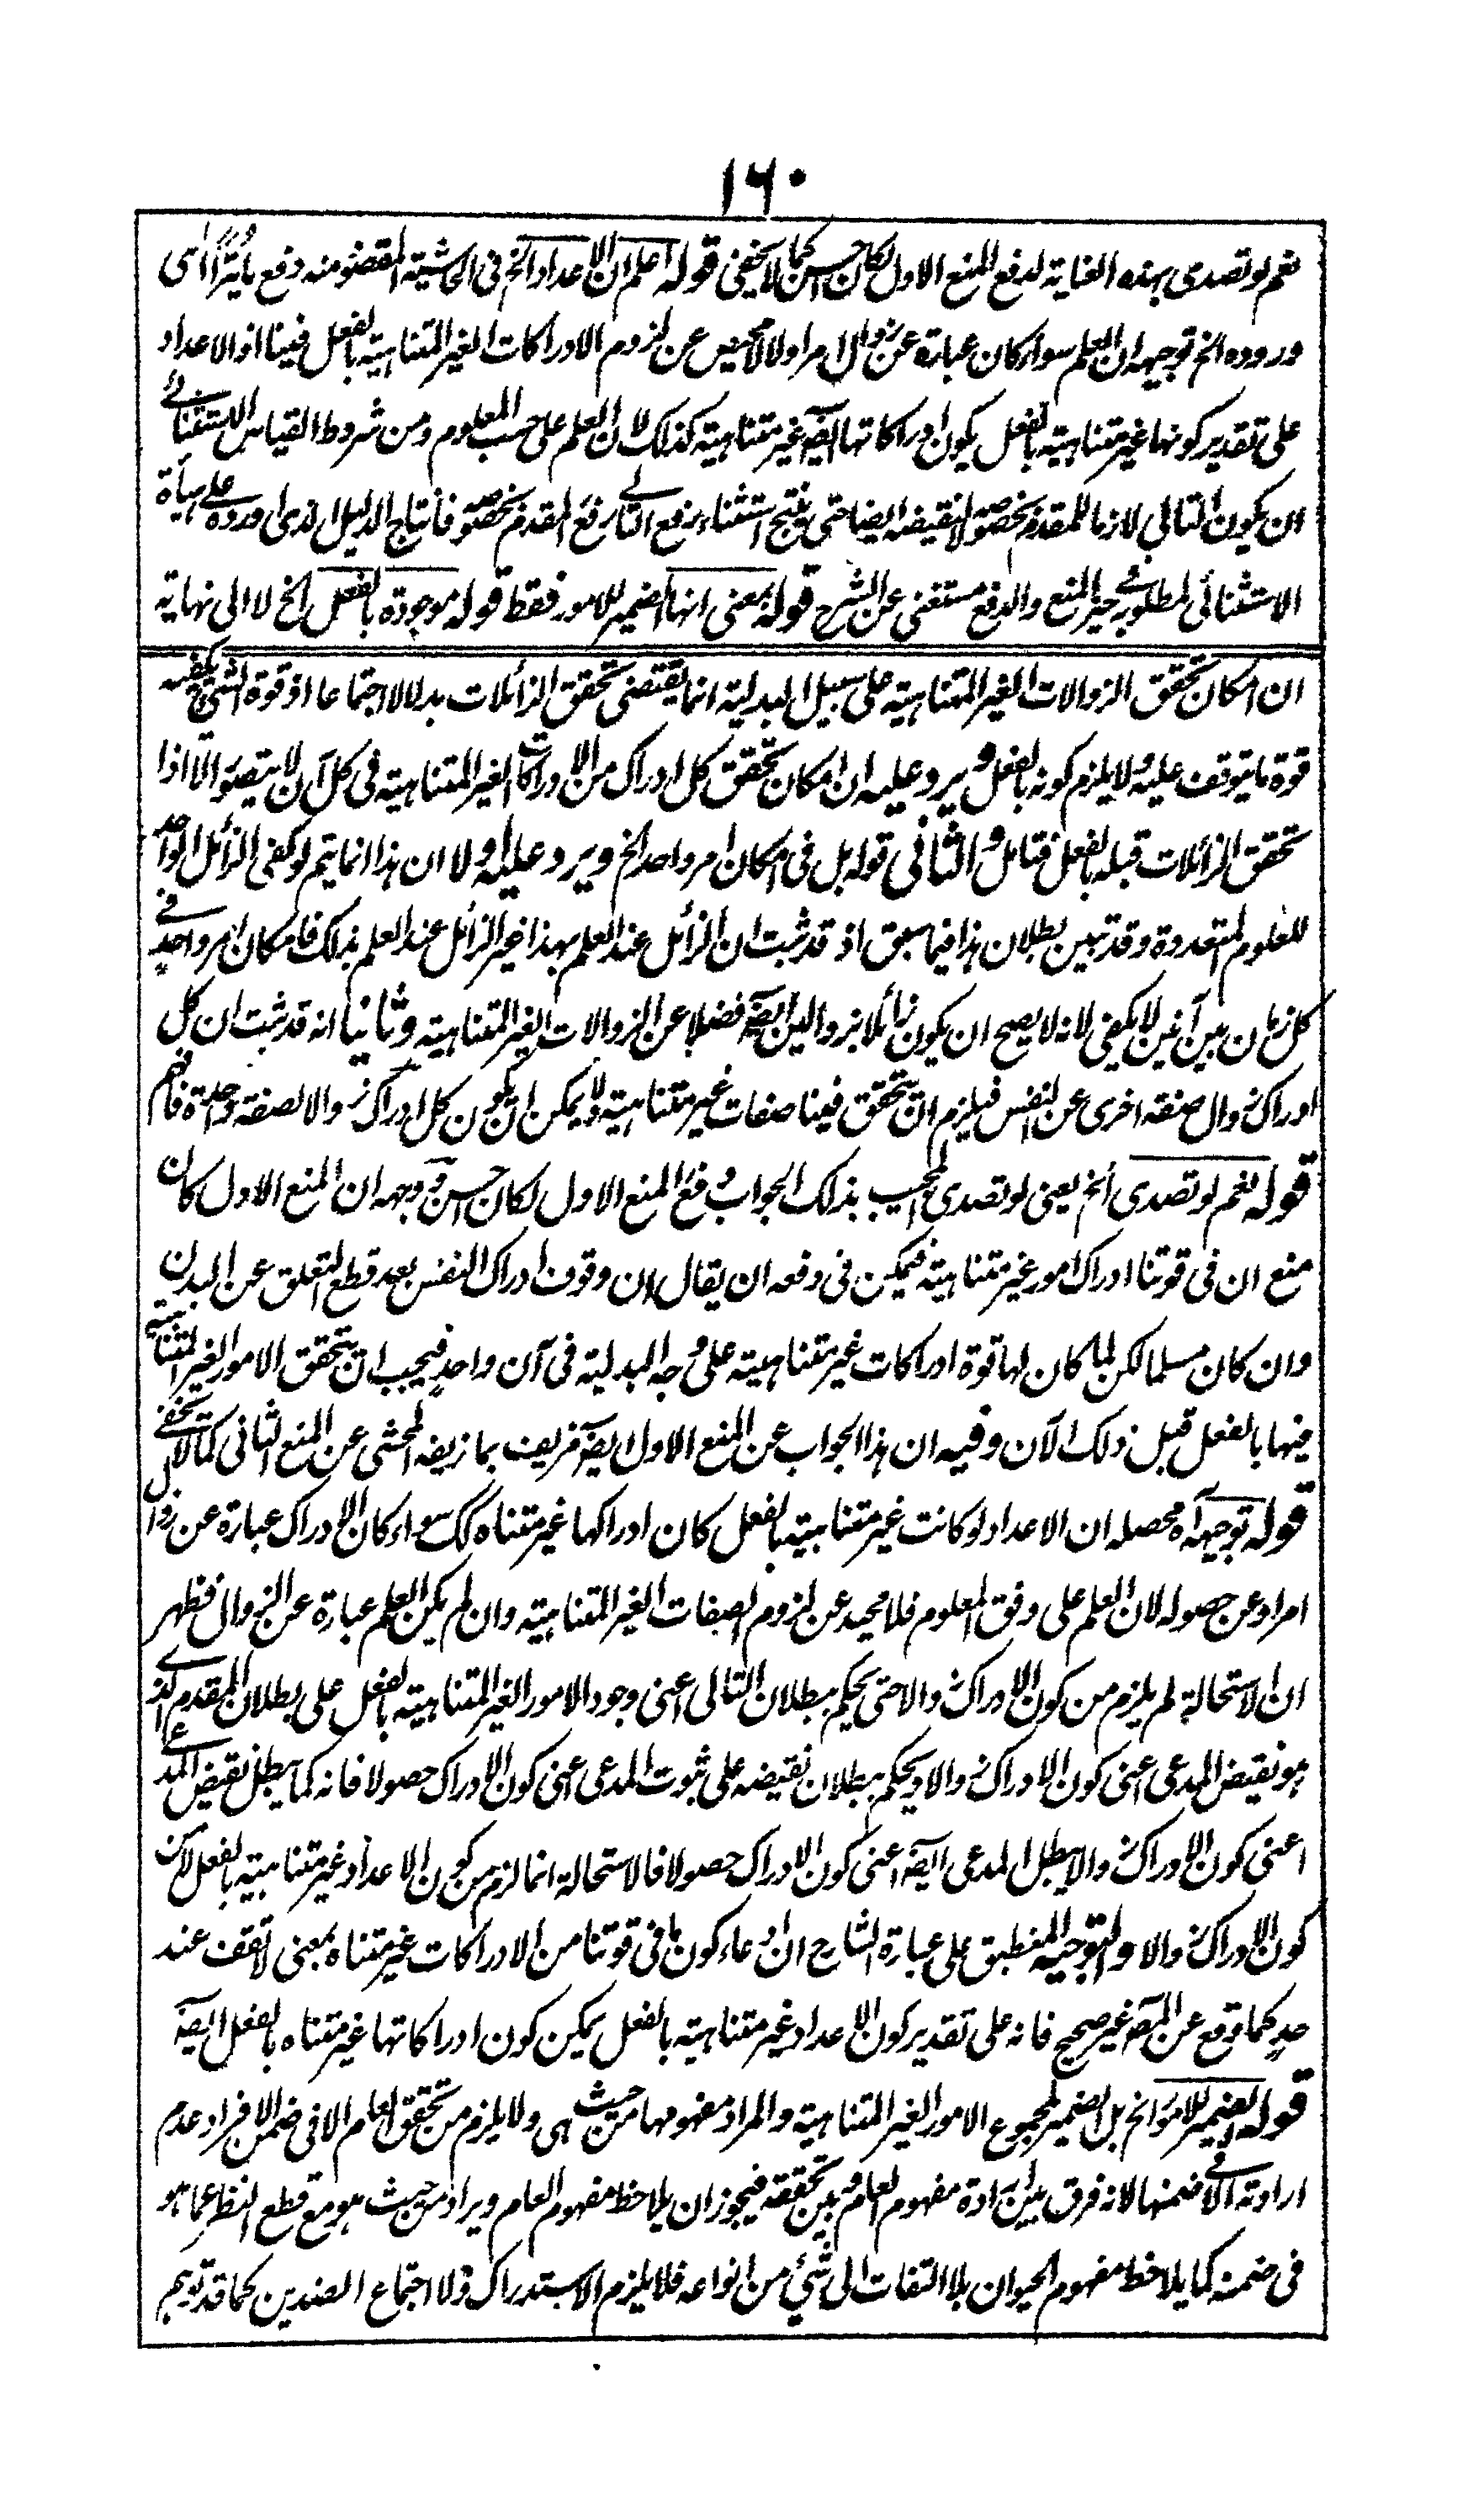 ١٦٠
نعم لو تصدى بهذه العناية لدفع المنع الاول لكان احسن كما لا يخفى قوله اعلم ان الاعداد الخ فى الحاشية المقصود منه دفع ما يتراأى
وروده الخ توجيهه ان العلم سواء كان عبارة عن زوال امر اولا لا محيص عن لزوم الادراكات الغير المتناهية بالفعل فينا اذ الاعداد
على تقدير كونها غير متناهية بالفعل يكون ادراكاتها ايضا غير متناهية كذلك لان العلم على حسب المعلوم ومن شروط القياس الاستثنائى
ان يكون التالى لازما للمقدم بخصوصه لا لنقيضه ايضا حتى ينتج استثناء رفع التالى رفع المقدم بخصوصه فانتاج الدليل الذى اورده على هيأة
الاستثنائى لمطلوبه فى حيز المنع والدفع مستغنى عن الشرح قوله بمعنى انها الضمير للامور فقط قوله موجودة بالفعل الخ لا الى نهاية
ان امكان تحقق الزوالات الغير المتناهية على سبيل البدلية انما يقتضى تحقق الزائلات بدلا لا اجتماعا اذ قوة الشئ يكفيه
قوة ما يتوقف عليه ولا يلزم كونه بالفعل ويرد عليه ان امكان تحقق كل ادراك من الادراكات الغير المتناهية فى كل آن لا يتصور الا اذا
تحقق الزائلات قبله بالفعل فتامل والثانى قوله بل فى امكان امر واحد الخ ويرد عليه اولا ان هذا انما يتم لو كفى الزائل الواحد
للعلوم المتعددة وقد تبين بطلان هذا فيما سبق اذ قد ثبت ان الزائل عند العلم بهذا غير الزائل عند العلم بذلك فامكان امر واحد فى
كل زمان بين آنين لا يكفى لانه لا يصح ان يكون زائلا بزوالين ايضا فضلا عن الزوالات الغير المتناهية وثانيا انه قد ثبت ان كل
ادراك زوال صفة اخرى عن النفس فيلزم ان يتحقق فينا صفات غير متناهية ولا يمكن ان يكون كل ادراك زوالا لصفة واحدة فافهم
قوله نعم لو تصدى الخ يعنى لو تصدى المجيب بذلك الجواب دفع المنع الاول لكان احسن ووجهه ان المنع الاول كان
منع ان فى قوتنا ادراك امور غير متناهية فيمكن فى دفعه ان يقال ان وقوف ادراك النفس بعد قطع التعلق عن البدن
وان كان مسلما لكن لما كان لها قوة ادراكات غير متناهية على وجه البدلية فى آن واحد فيجب ان يتحقق الامور الغير المتناهية
فيها بالفعل قبل ذلك الآن وفيه ان هذا الجواب عن المنع الاول ايضا مزيف بما زيفه المحشى عن المنع الثانى كما لا يخفى
قوله توجيهه آه محصله ان الاعداد لو كانت غير متناهية بالفعل كان ادراكها غير متناه كك سواء كان الادراك عبارة عن زوال
امر او عن حصوله لان العلم على وفق المعلوم فلا محيد عن لزوم الصفات الغير المتناهية وان لم يكن العلم عبارة عن الزوال فظهر
ان الاستحالة لم يلزم من كون الادراك زوالا حتى يحكم ببطلان التالى اعنى وجود الامور الغير المتناهية بالفعل على بطلان المقدم الذى
هو نقيض المدعى اعنى كون الادراك زوالا ويحكم ببطلان نقيضه على ثبوت المدعى اعنى كون الادراك حصولا فانه كما يبطل نقيض المدعى
اعنى كون الادراك زوالا يبطل المدعى ايضا اعنى كون الادراك حصولا فالاستحالة انما لزم من كون الاعداد غير متناهية بالفعل لا من
كون الادراك زوالا والتوجيه المنطبق على عبارة الشارح ان ادعاء كون ما فى قوتنا من الادراكات غير متناه بمعنى لا تقف عند
حد كما وقع عن المص غير صحيح فانه على تقدير كون الاعداد غير متناهية بالفعل يمكن كون ادراكاتها غير متناه بالفعل ايضا
قوله الضمير للامور الخ بل الضمير لمجموع الامور الغير المتناهية والمراد مفهومها من حيث هى ولا يلزم من تحقق العام الا فى ضمن الافراد عدم
ارادته الا فى ضمنها لانه فرق بين ارادة مفهوم العام وبين تحققه فيجوز ان يلاحظ مفهوم العام ويراد من حيث هو مع قطع النظر عما هو
فى ضمنه كما يلاحظ مفهوم الحيوان بلا التفات الى شئ من انواعه فلا يلزم الاستدراك ولا اجتماع الضدين كما قد توهم